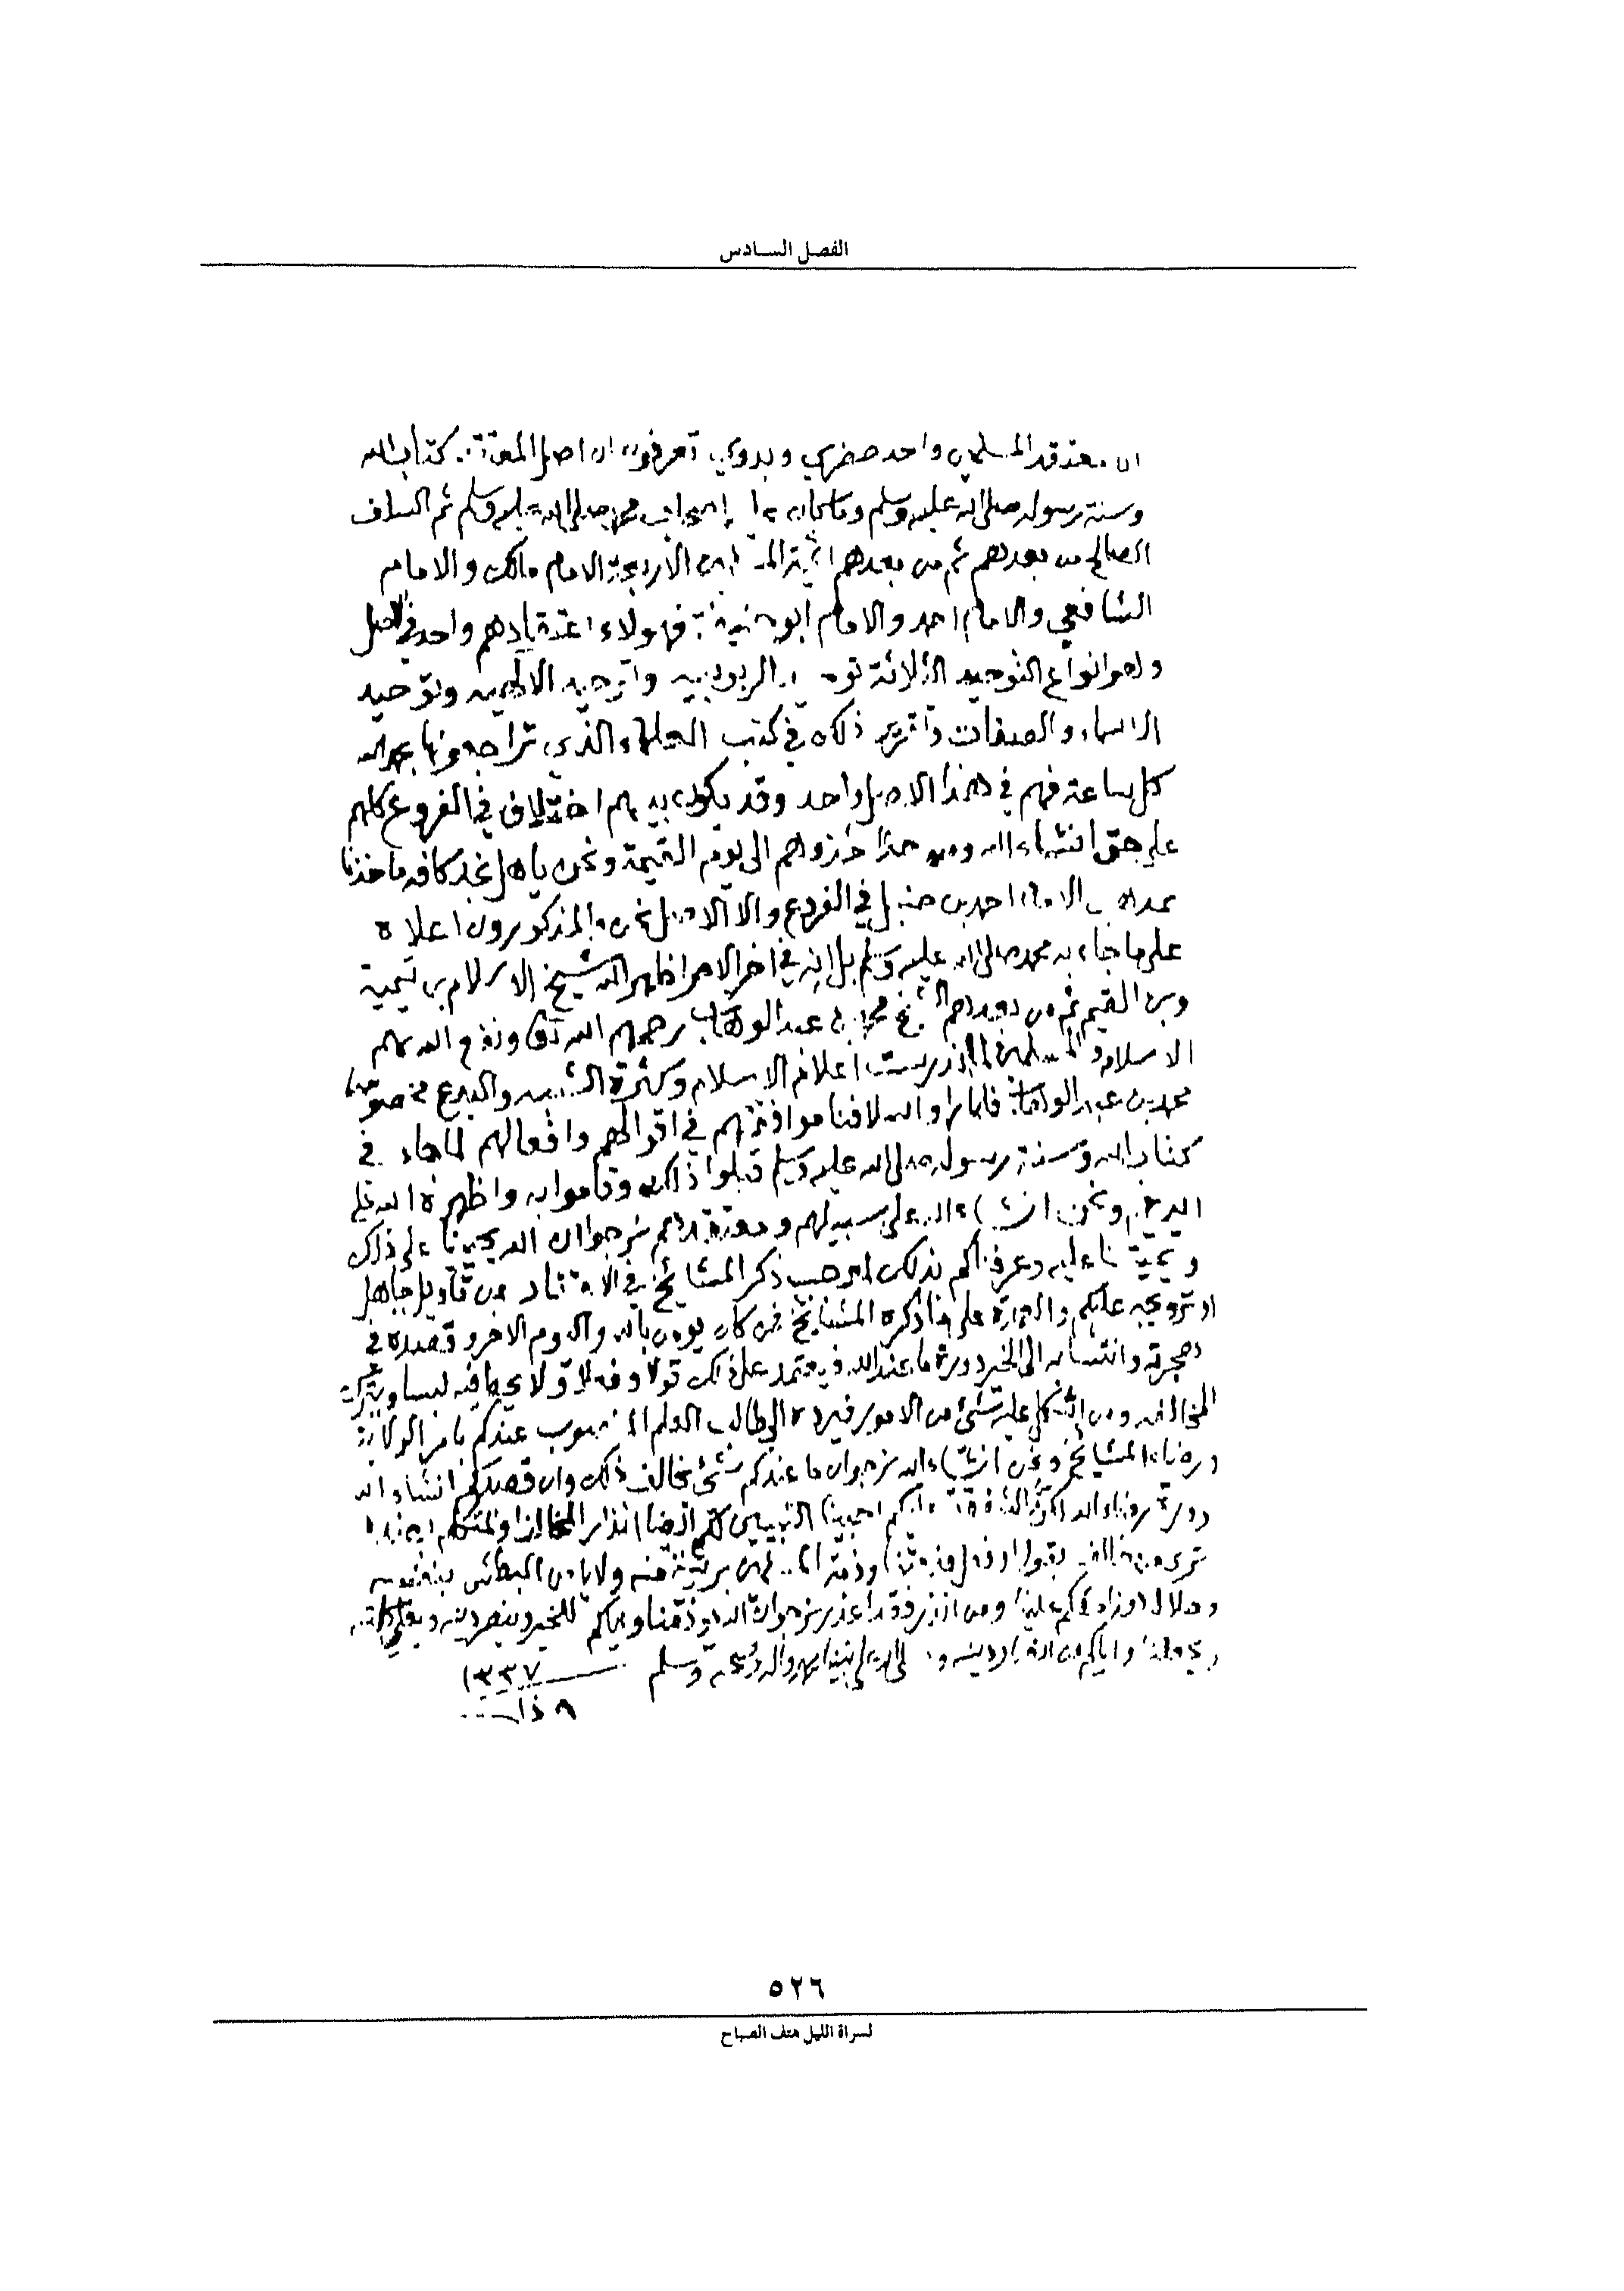 الفصل السادس
ان معتقد المسلمين واحد حضري وبدوي تعرفون ان اصل المعتقد كتاب الله
وسنة رسوله صلى الله عليه وسلم وما كان عليه اصحاب محمد صلى الله عليه وسلم ثم السلف
الصالح من بعدهم ثم من بعدهم ائمة المذاهب الأربعة الامام مالك والامام
الشافعي والامام احمد والامام أبو حنيفة فهولاء اعتقادهم واحد في الاصل
وهو انواع التوحيد الثلاثة توحيد الربوبيه وتوحيد الالهيه وتوحيد
الاسماء والصفات وتقرير ذلك في كتب العلماء الذي تراجعونها بحمد الله
كل ساعة فهم في هذا الاصل واحد وقد يكون بينهم اختلاف في الفروع كلهم
على حق انشاء الله ومن حذا حذوهم الى يوم القيمة ونحن ياهل نجد كافه ماخذنا
بمذهب الامام احمد بن حنبل في الفروع والا الاصل نحن والمذكورون اعلاه
على ما جاء به محمد صلى الله عليه وسلم بل انه في اخر الامر اظهر الله شيخ الاسلام بن تيمية
وبن القيم ثم من بعدهم الشيخ محمد بن عبد الوهاب رحمهم الله ونفع الله بهم
الاسلام والمسلمين اندرست اعلام الاسلام وكثرة والبدع خصوصا
محمد بن عبد الوهاب فلما راو اسلافنا موافقتهم في اقوالهم وافعالهم لما جاء في
كتاب الله وسنة رسوله صلى الله عليه وسلم قبلوا ذلك وقاموا به واظهره الله على
ايديهم ونحن انشاء الله على سبيلهم ومعتقدهم نرجوا ان الله يحيينا على ذلك
ويميتنا عليه وعرفناكم بذلك لموجب ذكر المشايخ في من تاويل جاهل
او ترويجه عليكم والعمدة على ما ذكره المشايخ فمن كان يومن بالله واليوم الاخر وقصده في
هجرته وانتسابه الى الخير ودورة ما عند الله فيعتمد على ذلك قولا وفعلا ولا يجعل فيه لبسا ويترك
المخالفه ومن اشكل عليه شئ من الامور فيرده الى طالب العلم المنصوب عندكم بامر الولاية
ورضاء المشايخ ونحن انشاء الله نرجوا ان ما عندكم شئ يخالف ذلك وان قصدكم انشاء الله
دورة رضاء الله لكن الشفقة عليكم احبينا التبيين لكم ايضا انذار المخالف والمتكلم
ترى من خالف بقول او فعل وذمة المسلمين بريئة منه ولا يامن البطش بنفسه
وحلاله ومن انذر فقد اعذر نرجوا ان الله يوفقنا وياكم للخير وينصر دينه ويعلي كلمته
ويجعلنا واياكم من انصار دينه وصلى الله على نبينا محمد واله وصحبه وسلم ١٣٣٧
٨ ذا
٥٢٦
لسراة الليل هتف الصباح